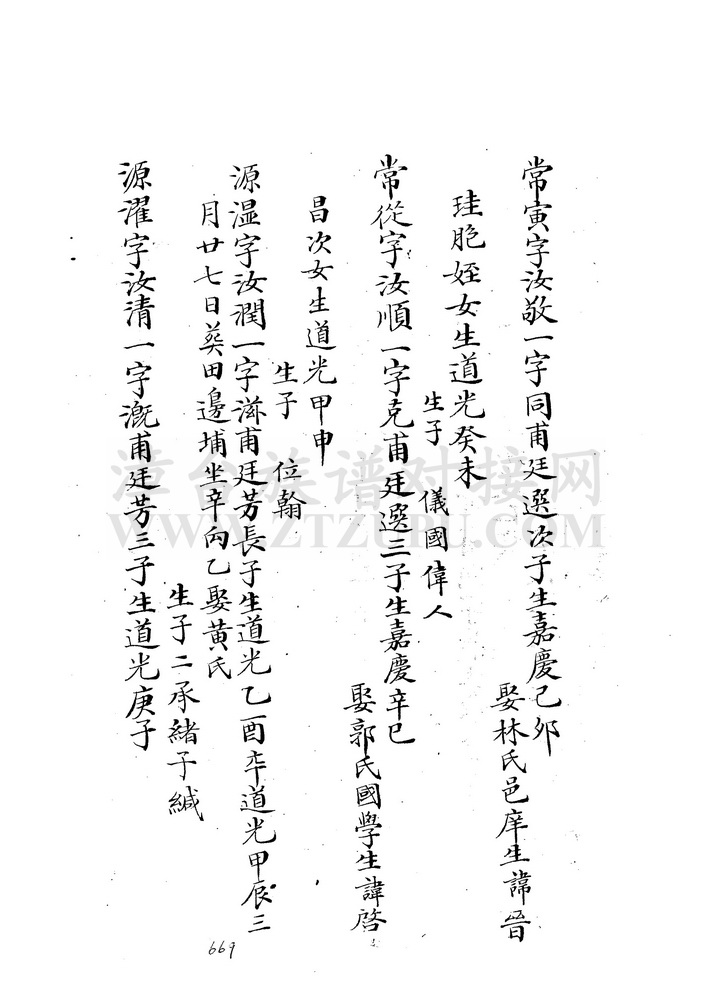 常寅字汝敬一字同甫廷選次子生嘉慶己卯
娶林氏邑庠生諱晉
珪胞姪女生道光癸未
生子 儀國偉人
常從字汝順一字克甫廷選三子生嘉慶辛巳
娶郭氏國學生諱啓
昌次女生道光甲申
生子 位翰
源濕字汝潤一字滋甫廷芳長子生道光乙酉卒道光甲辰三
月廿七日葬田邊埔坐辛向乙娶黄氏
生子二承緒子緘
源濯字汝清一字溉甫廷芳三子生道光庚子
669
漳台族谱对接网
WWW.ZTZUPU.COM